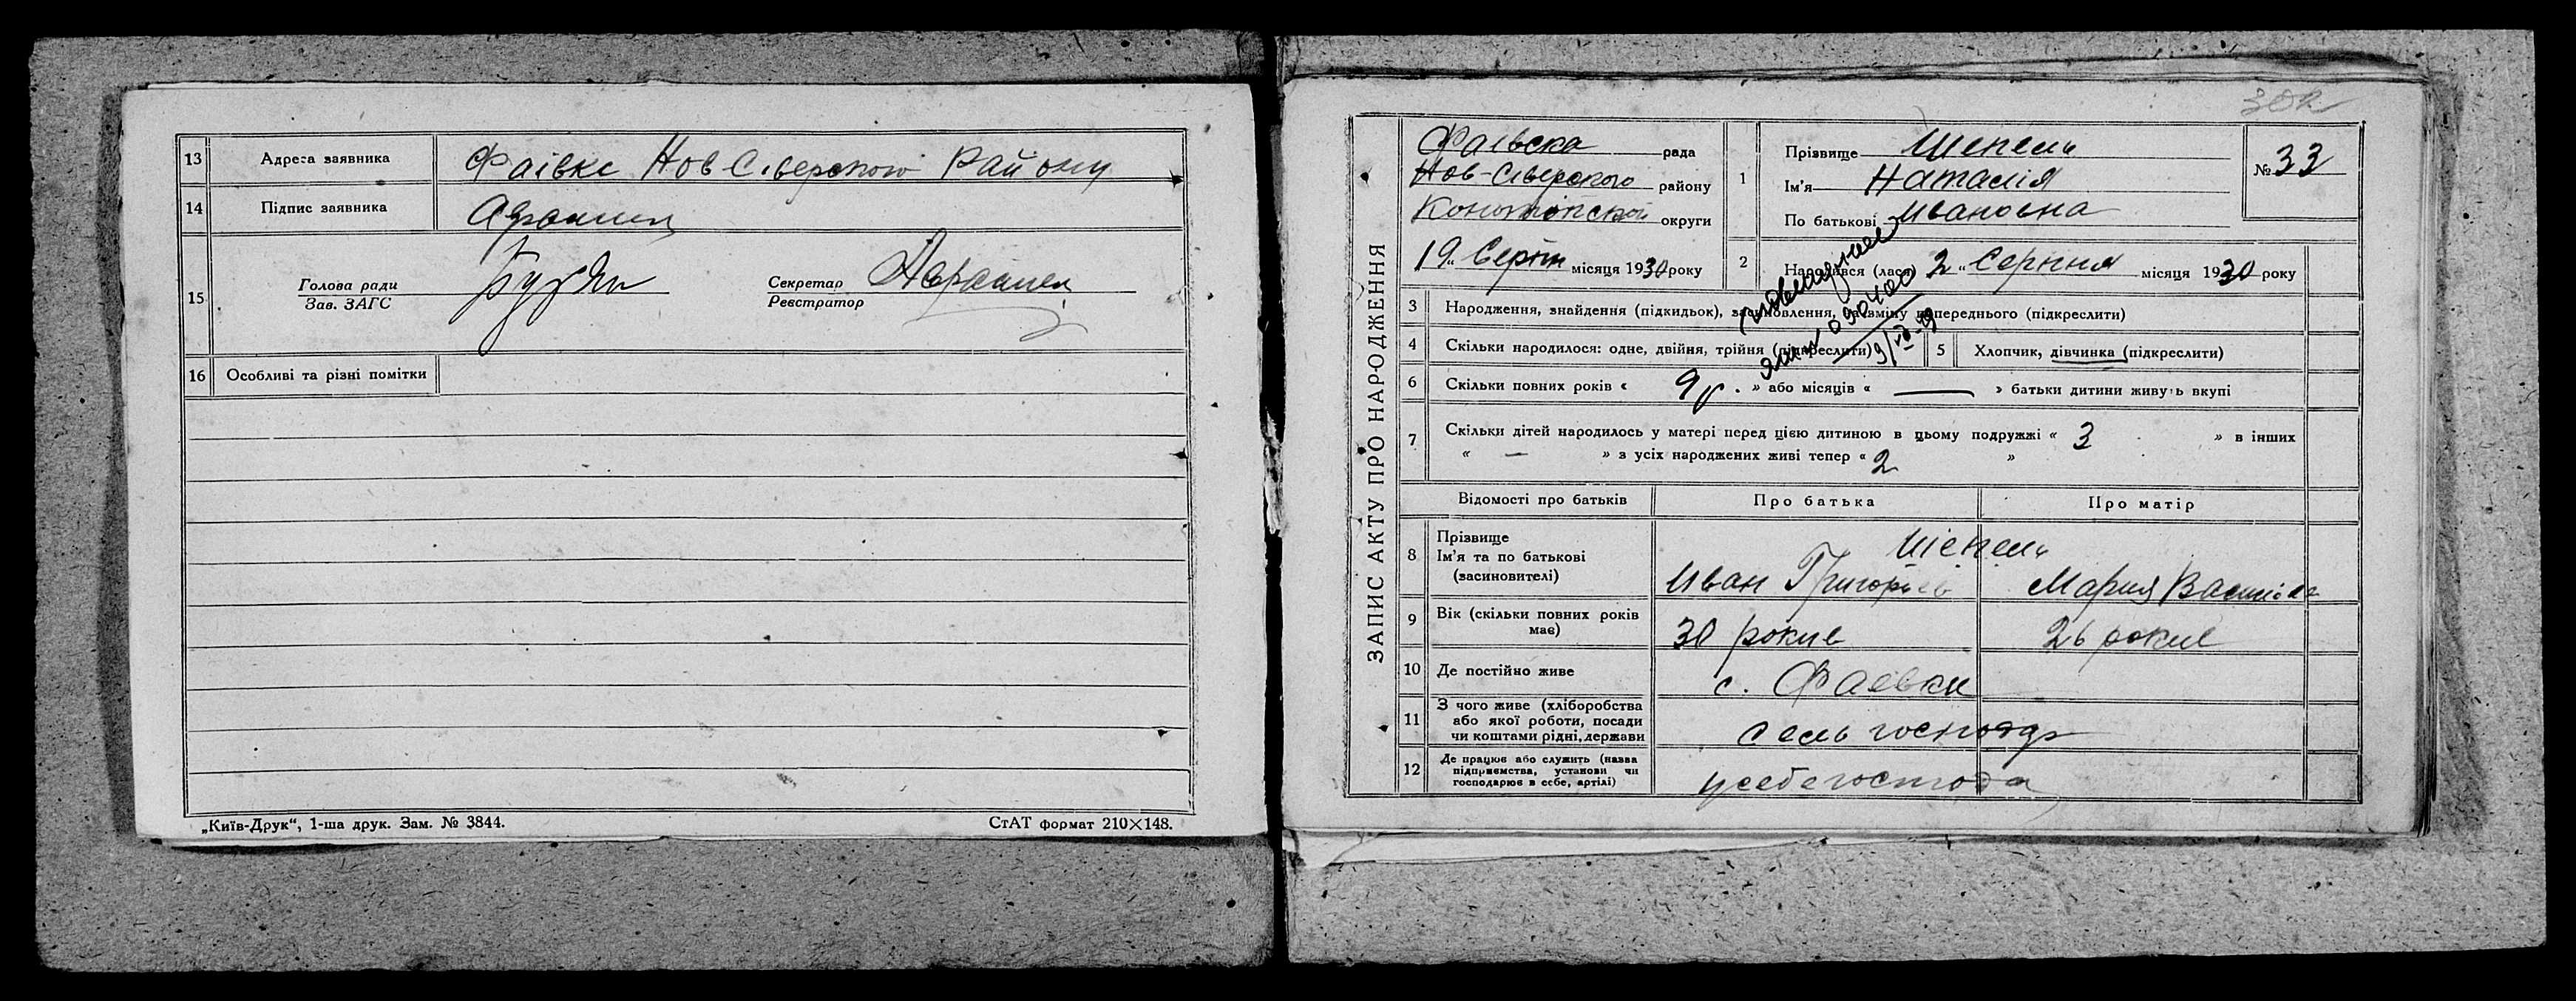 13 Адреса заявника Фаівке Нов Сіверского Району
14 Підпис заявника
15 Голова ради
Зав. ЗАГС
Секретар
Реєстратор
16 Особливі та різні помітки
„Київ-Друк“, 1-ша друк. Зам. № 3844.
СтАТ формат 210×148.
302
ЗАПИС АКТУ ПРО НАРОДЖЕННЯ
Фаівска рада
Нов-Сіверского району
Конотопскої округи
19 „ Серпн місяця 1930 року
1 Прізвище Шепель
Ім'я Наталія
По батькові Ивановна
№ 33
2 Народився (лася) 2 „ Серпня місяця 1930 року
3 Народження, знайдення (підкидьок), засиновлення, на зміну попереднього (підкреслити)
4 Скільки народилося: одне, двійня, трійня (підкреслити)
5 Хлопчик, дівчинка (підкреслити)
6 Скільки повних років « 9 р. » або місяців « — » батьки дитини живуть вкупі
7 Скільки дітей народилось у матері перед цією дитиною в цьому подружжі « 3 » в інших
« — » з усіх народжених живі тепер « 2 »
Відомості про батьків Про батька Про матір
8 Прізвище
Ім'я та по батькові
(засиновителі)
Шепель
Иван Григорьев Мария Василів
9 Вік (скільки повних років
має)
30 рокив 26 рокив
10 Де постійно живе с. Фаевки
11 З чого живе (хліборобства
або якої роботи, посади
чи коштами рідні, держави
Сель господар
12 Де працює або служить (назва
підприємства, установи чи
господарює в себе, артілі)
у себе господа